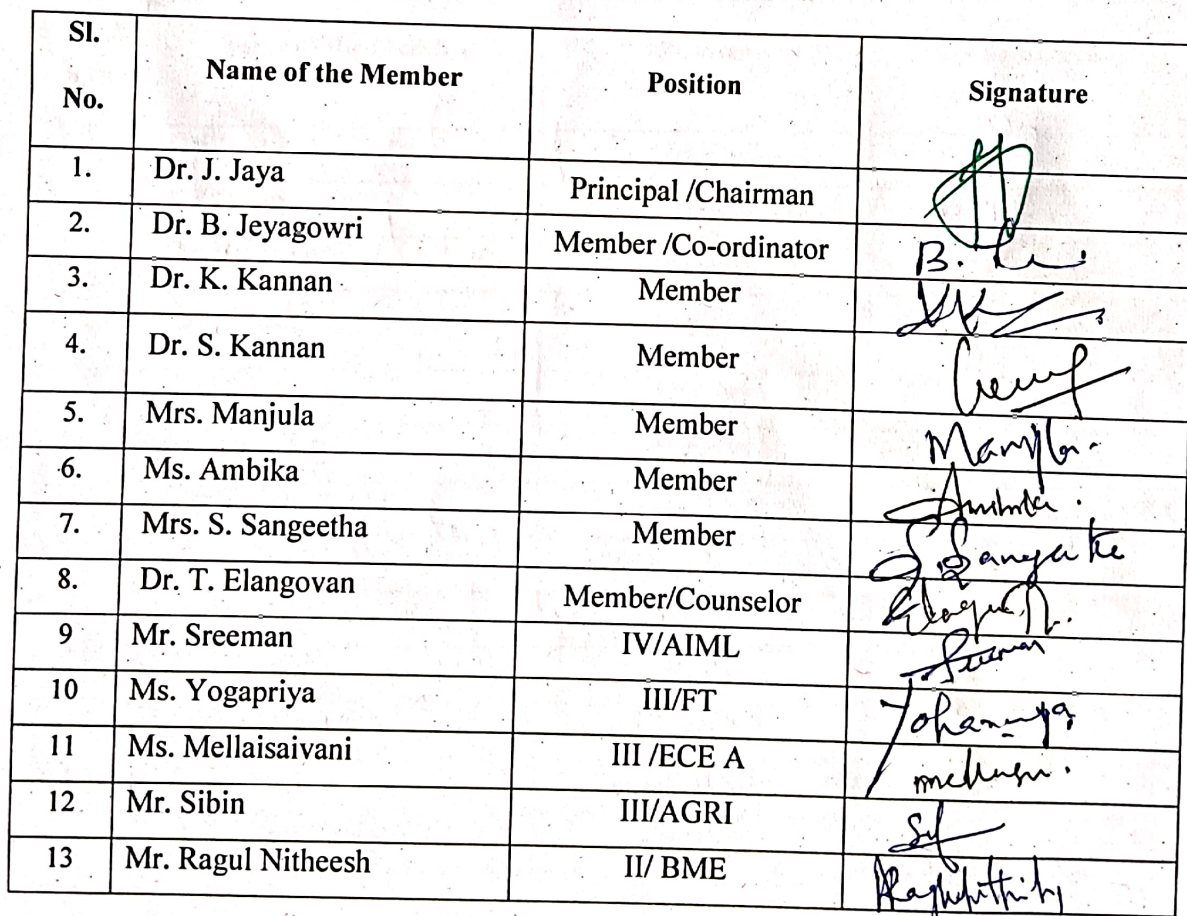 Sl. No. Name of the Member Position Signature
1. Dr. J. Jaya Principal /Chairman
2. Dr. B. Jeyagowri Member /Co-ordinator B.
3. Dr. K. Kannan Member
4. Dr. S. Kannan Member
5. Mrs. Manjula Member
6. Ms. Ambika Member
7. Mrs. S. Sangeetha Member
8. Dr. T. Elangovan Member/Counselor
9 Mr. Sreeman IV/AIML
10 Ms. Yogapriya III/FT
11 Ms. Mellaisaivani III /ECE A
12 Mr. Sibin III/AGRI
13 Mr. Ragul Nitheesh II/ BME